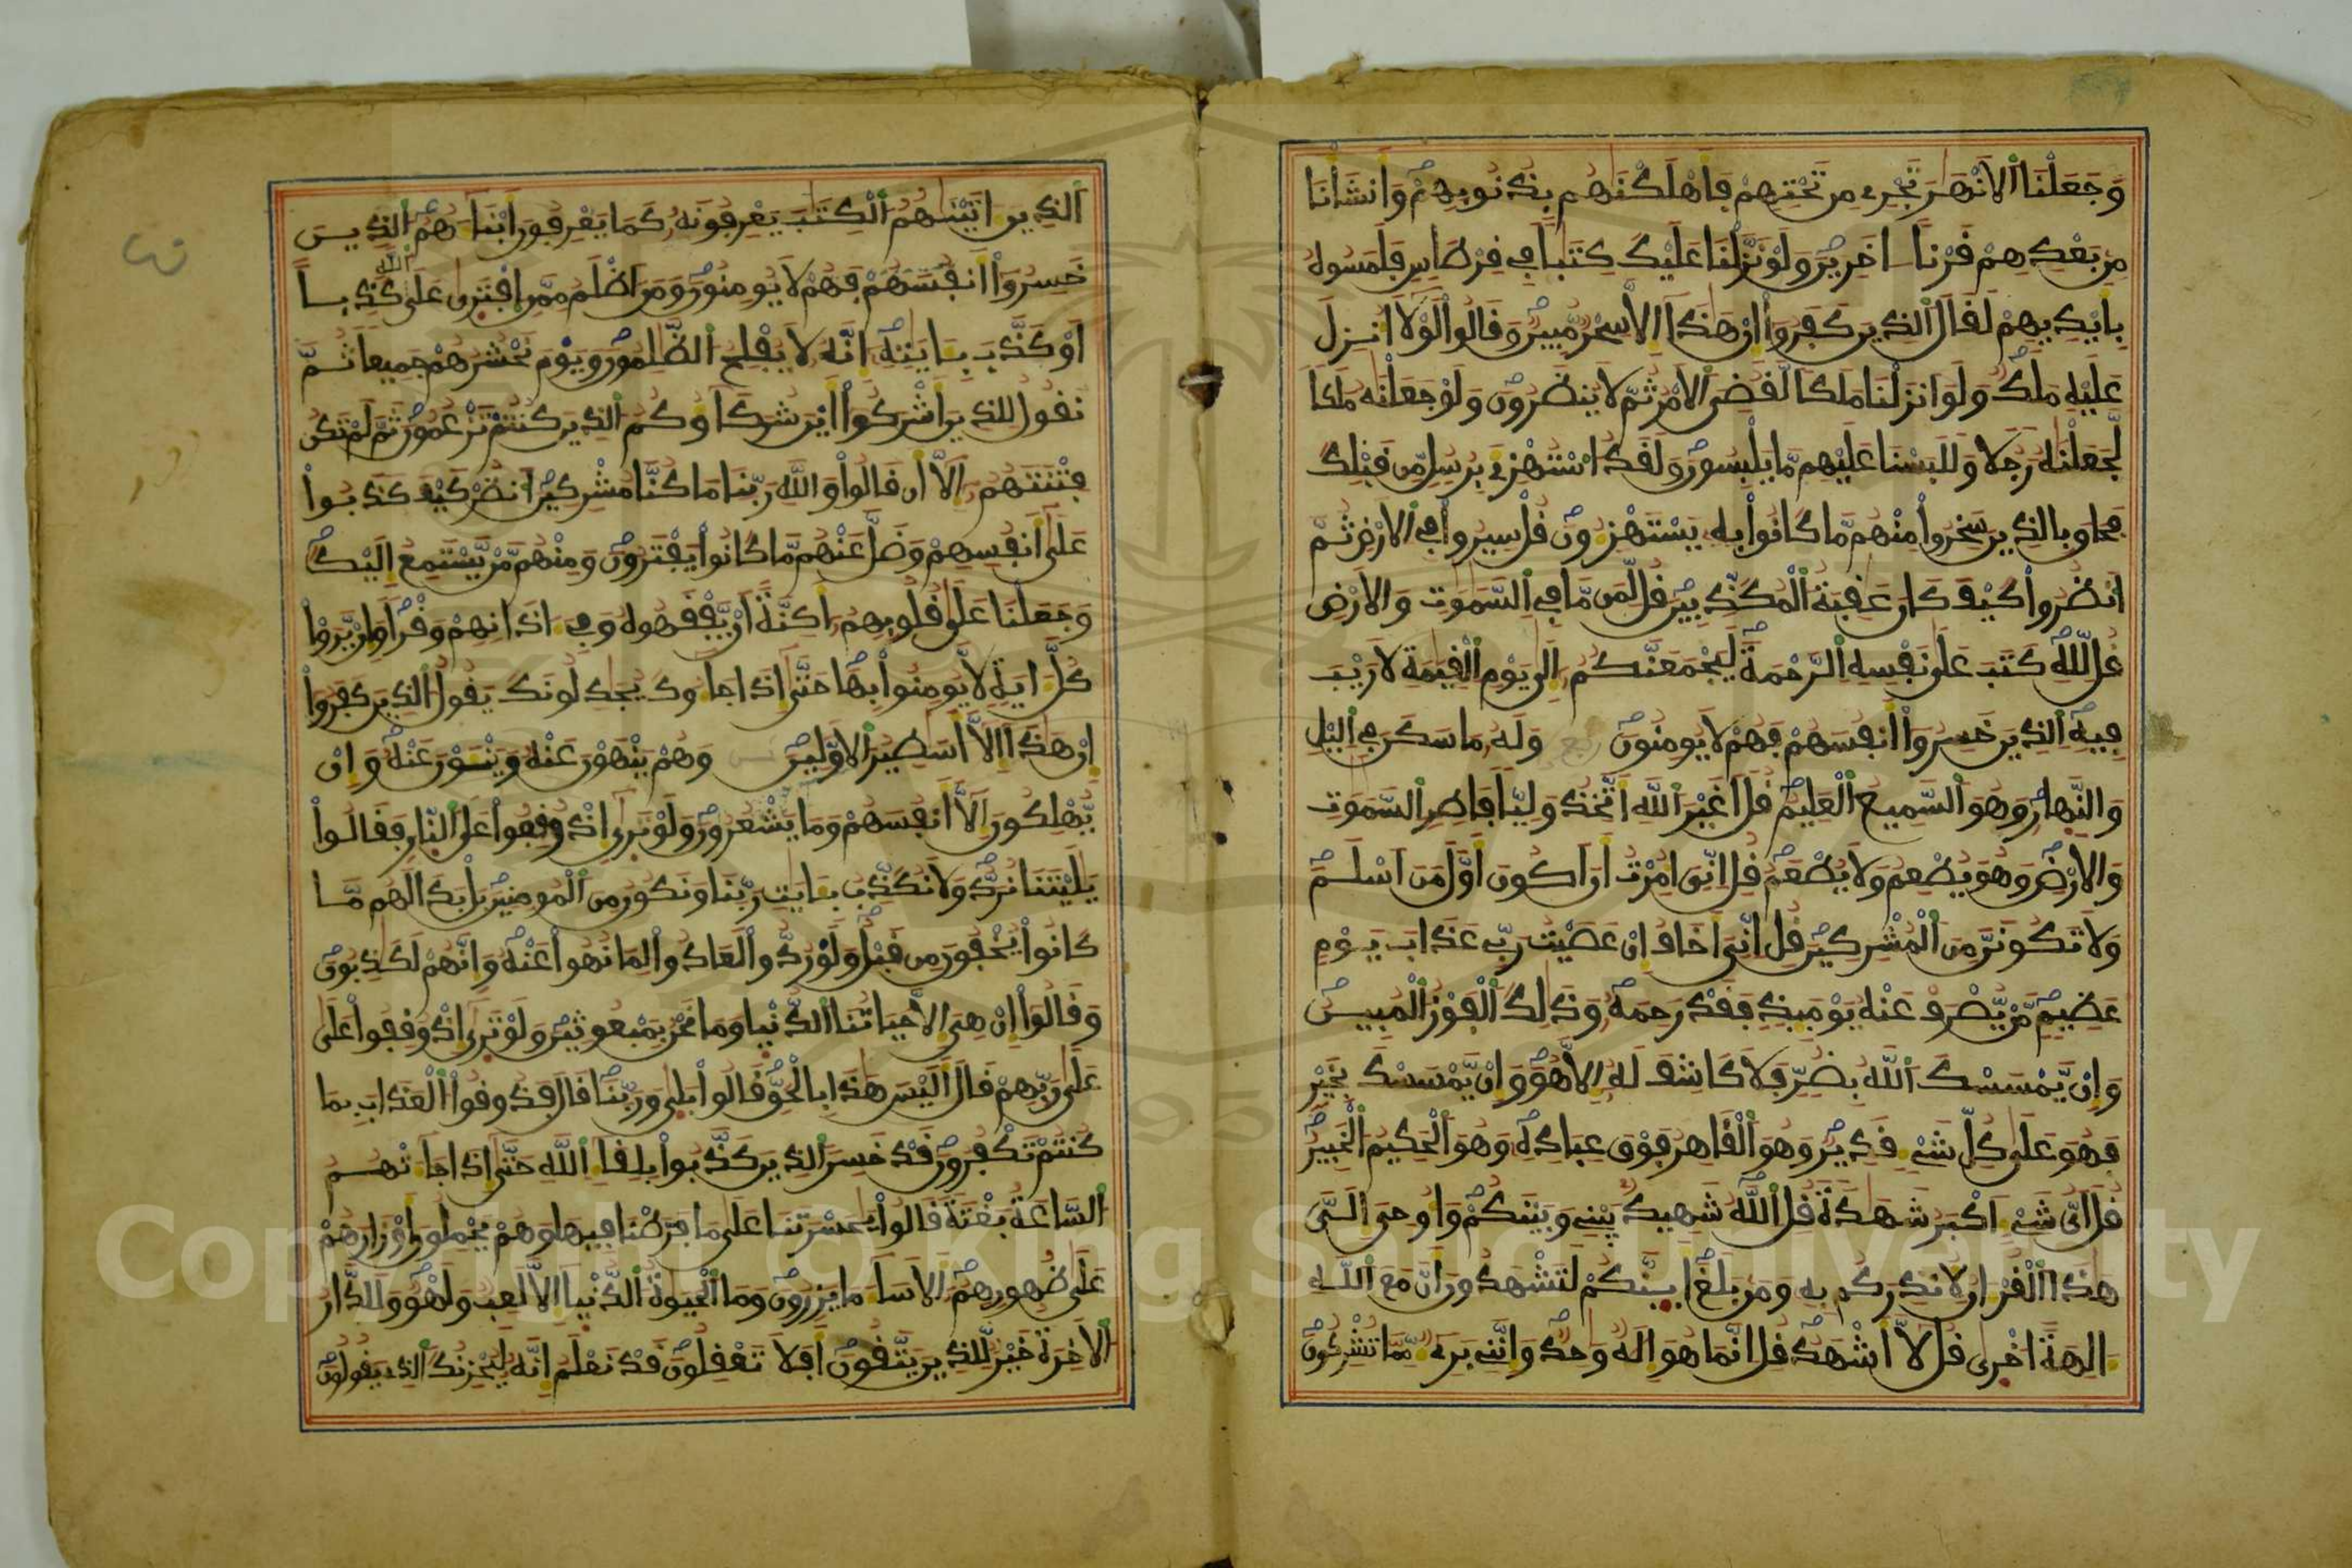 وَجَعَلْنَا اَلَانْهَٰرَ تَجْرِے مِن تَحْتِهِمْ فَأَهْلَكْنَٰهُم بِذُنُوبِهِمْ وَأَنشَأْنَا
مِنۢ بَعْدِهِمْ قَرْناً اٰخَرِينَ وَلَوْ نَزَّلْنَا عَلَيْكَ كِتَٰباً فِے قِرْطَاسٍ فَلَمَسُوهُ
بِأَيْدِيهِمْ لَقَالَ اَلذِينَ كَفَرُوٓاْ إِنْ هَٰذَآ إِلَّا سِحْرٌ مُّبِينٌ وَقَالُواْ لَوْلَآ أُنزِلَ
عَلَيْهِ مَلَكٌ وَلَوَ اَنزَلْنَا مَلَكاً لَّقُضِيَ اَلَامْرُ ثُمَّ لَا يُنظَرُونَ وَلَوْ جَعَلْنَٰهُ مَلَكاً
لَّجَعَلْنَٰهُ رَجُلاً وَلَلَبَسْنَا عَلَيْهِم مَّا يَلْبِسُونَ وَلَقَدُ اُسْتُهْزِۓَ بِرُسُلٍ مِّن قَبْلِكَ
فَحَاقَ بِالذِينَ سَخِرُواْ مِنْهُم مَّا كَانُواْ بِهِۦ يَسْتَهْزِءُونَ قُلْ سِيرُواْ فِے اِلَارْضِ ثُمَّ
اَنظُرُواْ كَيْفَ كَانَ عَٰقِبَةُ اُلْمُكَذِّبِينَ قُل لِّمَن مَّا فِے اِلسَّمَٰوَٰتِ وَالَارْضِ
قُل لِّلهِ كَتَبَ عَلَىٰ نَفْسِهِ اِلرَّحْمَةَ لَيَجْمَعَنَّكُمُۥٓ إِلَىٰ يَوْمِ اِلْقِيَٰمَةِ لَا رَيْبَ
فِيهِ اِلذِينَ خَسِرُوٓاْ أَنفُسَهُمْ فَهُمْ لَا يُومِنُونَ وَلَهُۥ مَا سَكَنَ فِے اِليْلِ
وَالنَّهَارِ وَهُوَ اَلسَّمِيعُ اُلْعَلِيمُ قُلَ اَغَيْرَ اَللَّهِ أَتَّخِذُ وَلِيّاً فَاطِرِ اِلسَّمَٰوَٰتِ
وَالَارْضِ وَهُوَ يُطْعِمُ وَلَا يُطْعَمُ قُلِ اِنِّيَ أُمِرْتُ أَنَ اَكُونَ أَوَّلَ مَنَ اَسْلَمَ
وَلَا تَكُونَنَّ مِنَ اَلْمُشْرِكِينَ قُلِ اِنِّيَ أَخَافُ إِنْ عَصَيْتُ رَبِّے عَذَابَ يَوْمٍ
عَظِيمٍ مَّنْ يُّصْرَفْ عَنْهُ يَوْمَئِذٍ فَقَدْ رَحِمَهُۥ وَذَٰلِكَ اَلْفَوْزُ اُلْمُبِينُ
وَإِنْ يَّمْسَسْكَ اَللَّهُ بِضُرٍّ فَلَا كَاشِفَ لَهُۥٓ إِلَّا هُوَ وَإِنْ يَّمْسَسْكَ بِخَيْرٍ
فَهُوَ عَلَىٰ كُلِّ شَےْءٍ قَدِيرٌ وَهُوَ اَلْقَاهِرُ فَوْقَ عِبَادِهِۦ وَهُوَ اَلْحَكِيمُ اُلْخَبِيرُ
قُلَ اَيُّ شَےْءٍ اَكْبَرُ شَهَٰدَةً قُلِ اِللَّهُ شَهِيدٌۢ بَيْنِے وَبَيْنَكُمْ وَأُوحِيَ إِلَيَّ
هَٰذَا اَلْقُرْءَانُ لِأُنذِرَكُم بِهِۦ وَمَنۢ بَلَغَ أَئِنَّكُمْ لَتَشْهَدُونَ أَنَّ مَعَ اَللَّهِ
ءَالِهَةً اُخْرَىٰ قُل لَّآ أَشْهَدُ قُلِ اِنَّمَا هُوَ إِلَٰهٌ وَٰحِدٌ وَإِنَّنِے بَرِےٓءٌ مِّمَّا تُشْرِكُونَ
اَلذِينَ ءَاتَيْنَٰهُمُ اُلْكِتَٰبَ يَعْرِفُونَهُۥ كَمَا يَعْرِفُونَ أَبْنَآءَهُمُ اُلذِينَ
خَسِرُوٓاْ أَنفُسَهُمْ فَهُمْ لَا يُومِنُونَ وَمَنَ اَظْلَمُ مِمَّنِ اِفْتَرَىٰ عَلَى اَللَّهِ كَذِباً
اَوْ كَذَّبَ بِـَٔايَٰتِهِۦٓ إِنَّهُۥ لَا يُفْلِحُ اُلظَّٰلِمُونَ وَيَوْمَ نَحْشُرُهُمْ جَمِيعاً ثُمَّ
نَقُولُ لِلذِينَ أَشْرَكُوٓاْ أَيْنَ شُرَكَآؤُكُمُ اُلذِينَ كُنتُمْ تَزْعُمُونَ ثُمَّ لَمْ تَكُن
فِتْنَتَهُمُۥٓ إِلَّآ أَن قَالُواْ وَاللَّهِ رَبِّنَا مَا كُنَّا مُشْرِكِينَ اَنظُرْ كَيْفَ كَذَبُواْ
عَلَىٰٓ أَنفُسِهِمْ وَضَلَّ عَنْهُم مَّا كَانُواْ يَفْتَرُونَ وَمِنْهُم مَّنْ يَّسْتَمِعُ إِلَيْكَ
وَجَعَلْنَا عَلَىٰ قُلُوبِهِمُۥٓ أَكِنَّةً أَنْ يَّفْقَهُوهُ وَفِےٓ ءَاذَانِهِمْ وَقْراً وَإِنْ يَّرَوْاْ
كُلَّ ءَايَةٍ لَّا يُومِنُواْ بِهَا حَتَّىٰٓ إِذَا جَآءُوكَ يُجَٰدِلُونَكَ يَقُولُ اُلذِينَ كَفَرُوٓاْ
إِنْ هَٰذَآ إِلَّآ أَسَٰطِيرُ اُلَاوَّلِينَ وَهُمْ يَنْهَوْنَ عَنْهُ وَيَنْـَٔوْنَ عَنْهُ وَإِنْ
يُّهْلِكُونَ إِلَّآ أَنفُسَهُمْ وَمَا يَشْعُرُونَ وَلَوْ تَرَىٰٓ إِذْ وُقِفُواْ عَلَى اَلنَّارِ فَقَالُواْ
يَٰلَيْتَنَا نُرَدُّ وَلَا نُكَذِّبُ بِـَٔايَٰتِ رَبِّنَا وَنَكُونُ مِنَ اَلْمُومِنِينَ بَلْ بَدَا لَهُم مَّا
كَانُواْ يُخْفُونَ مِن قَبْلُ وَلَوْ رُدُّواْ لَعَادُواْ لِمَا نُهُواْ عَنْهُ وَإِنَّهُمْ لَكَٰذِبُونَ
وَقَالُوٓاْ إِنْ هِيَ إِلَّا حَيَاتُنَا اَلدُّنْيا وَمَا نَحْنُ بِمَبْعُوثِينَ وَلَوْ تَرَىٰٓ إِذْ وُقِفُواْ عَلَىٰ
عَلَىٰ رَبِّهِمْ قَالَ أَلَيْسَ هَٰذَا بِالْحَقِّ قَالُواْ بَلَىٰ وَرَبِّنَا قَالَ فَذُوقُواْ اُلْعَذَابَ بِمَا
كُنتُمْ تَكْفُرُونَ قَدْ خَسِرَ اَلذِينَ كَذَّبُواْ بِلِقَآءِ اِللَّهِ حَتَّىٰٓ إِذَا جَآءَتْهُمُ
اُلسَّاعَةُ بَغْتَةً قَالُواْ يَٰحَسْرَتَنَا عَلَىٰ مَا فَرَّطْنَا فِيهَا وَهُمْ يَحْمِلُونَ أَوْزَارَهُمْ
عَلَىٰ ظُهُورِهِمُۥٓ أَلَا سَآءَ مَا يَزِرُونَ وَمَا اَلْحَيَوٰةُ اُلدُّنْيَآ إِلَّا لَعِبٌ وَلَهْوٌ وَلَلدَّارُ
اُلَاخِرَةُ خَيْرٌ لِّلذِينَ يَتَّقُونَ أَفَلَا تَعْقِلُونَ قَدْ نَعْلَمُ إِنَّهُۥ لَيُحْزِنُكَ اَلذِے يَقُولُونَ
Copyright © King Saud University